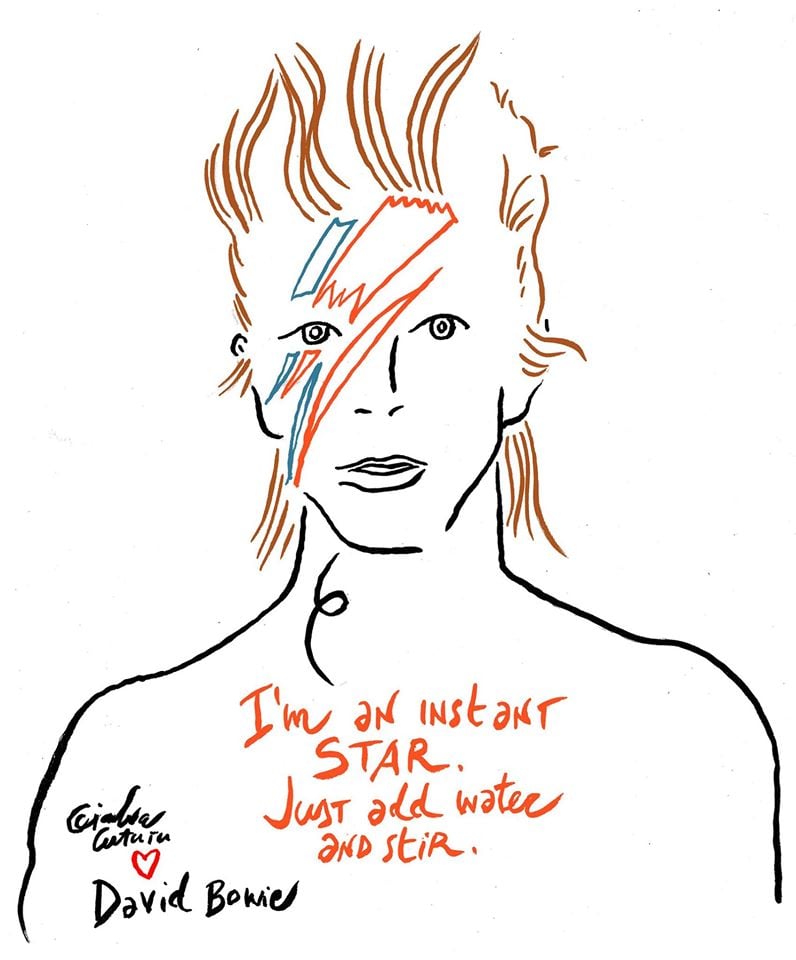 I'm an instant
STAR.
Just add water
and stir.
David Bowie